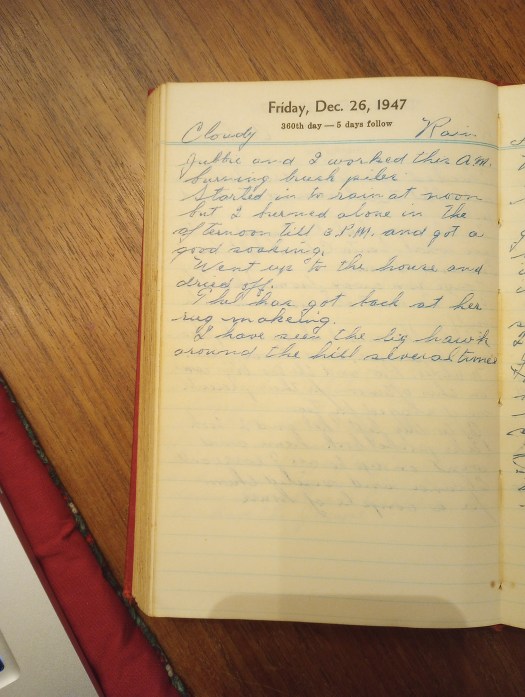 Friday, Dec. 26, 1947
360th day — 5 days follow
Cloudy Rain
and I worked this A.M.
burning brush piles.
Started in to rain at noon
but I burned alone in the
afternoon till 3 P.M. and got a
good soaking.
Went up to the house and
dried off.
has got back at her
rug makeing.
I have seen the big hawk
around the hill several times